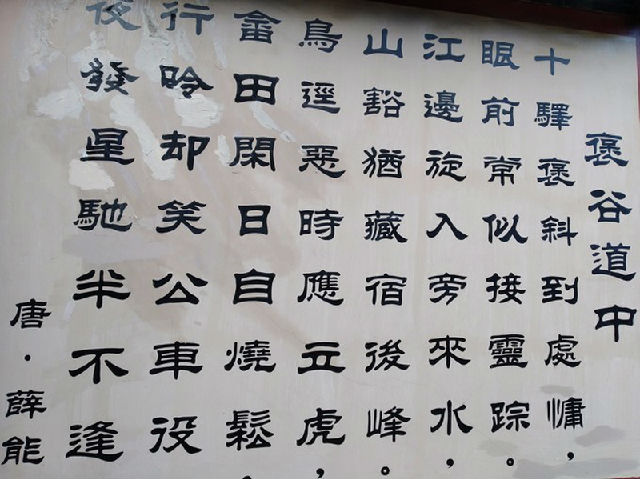 褒谷道中
十驛褒斜到處慵，
眼前常似接靈踪。
江邊旋入旁來水，
山豁猶藏宿後峰。
鳥逕惡時應立虎，
畬田閑日自燒鬆
行吟却笑公車役
夜發星馳半不逢
唐·薛能